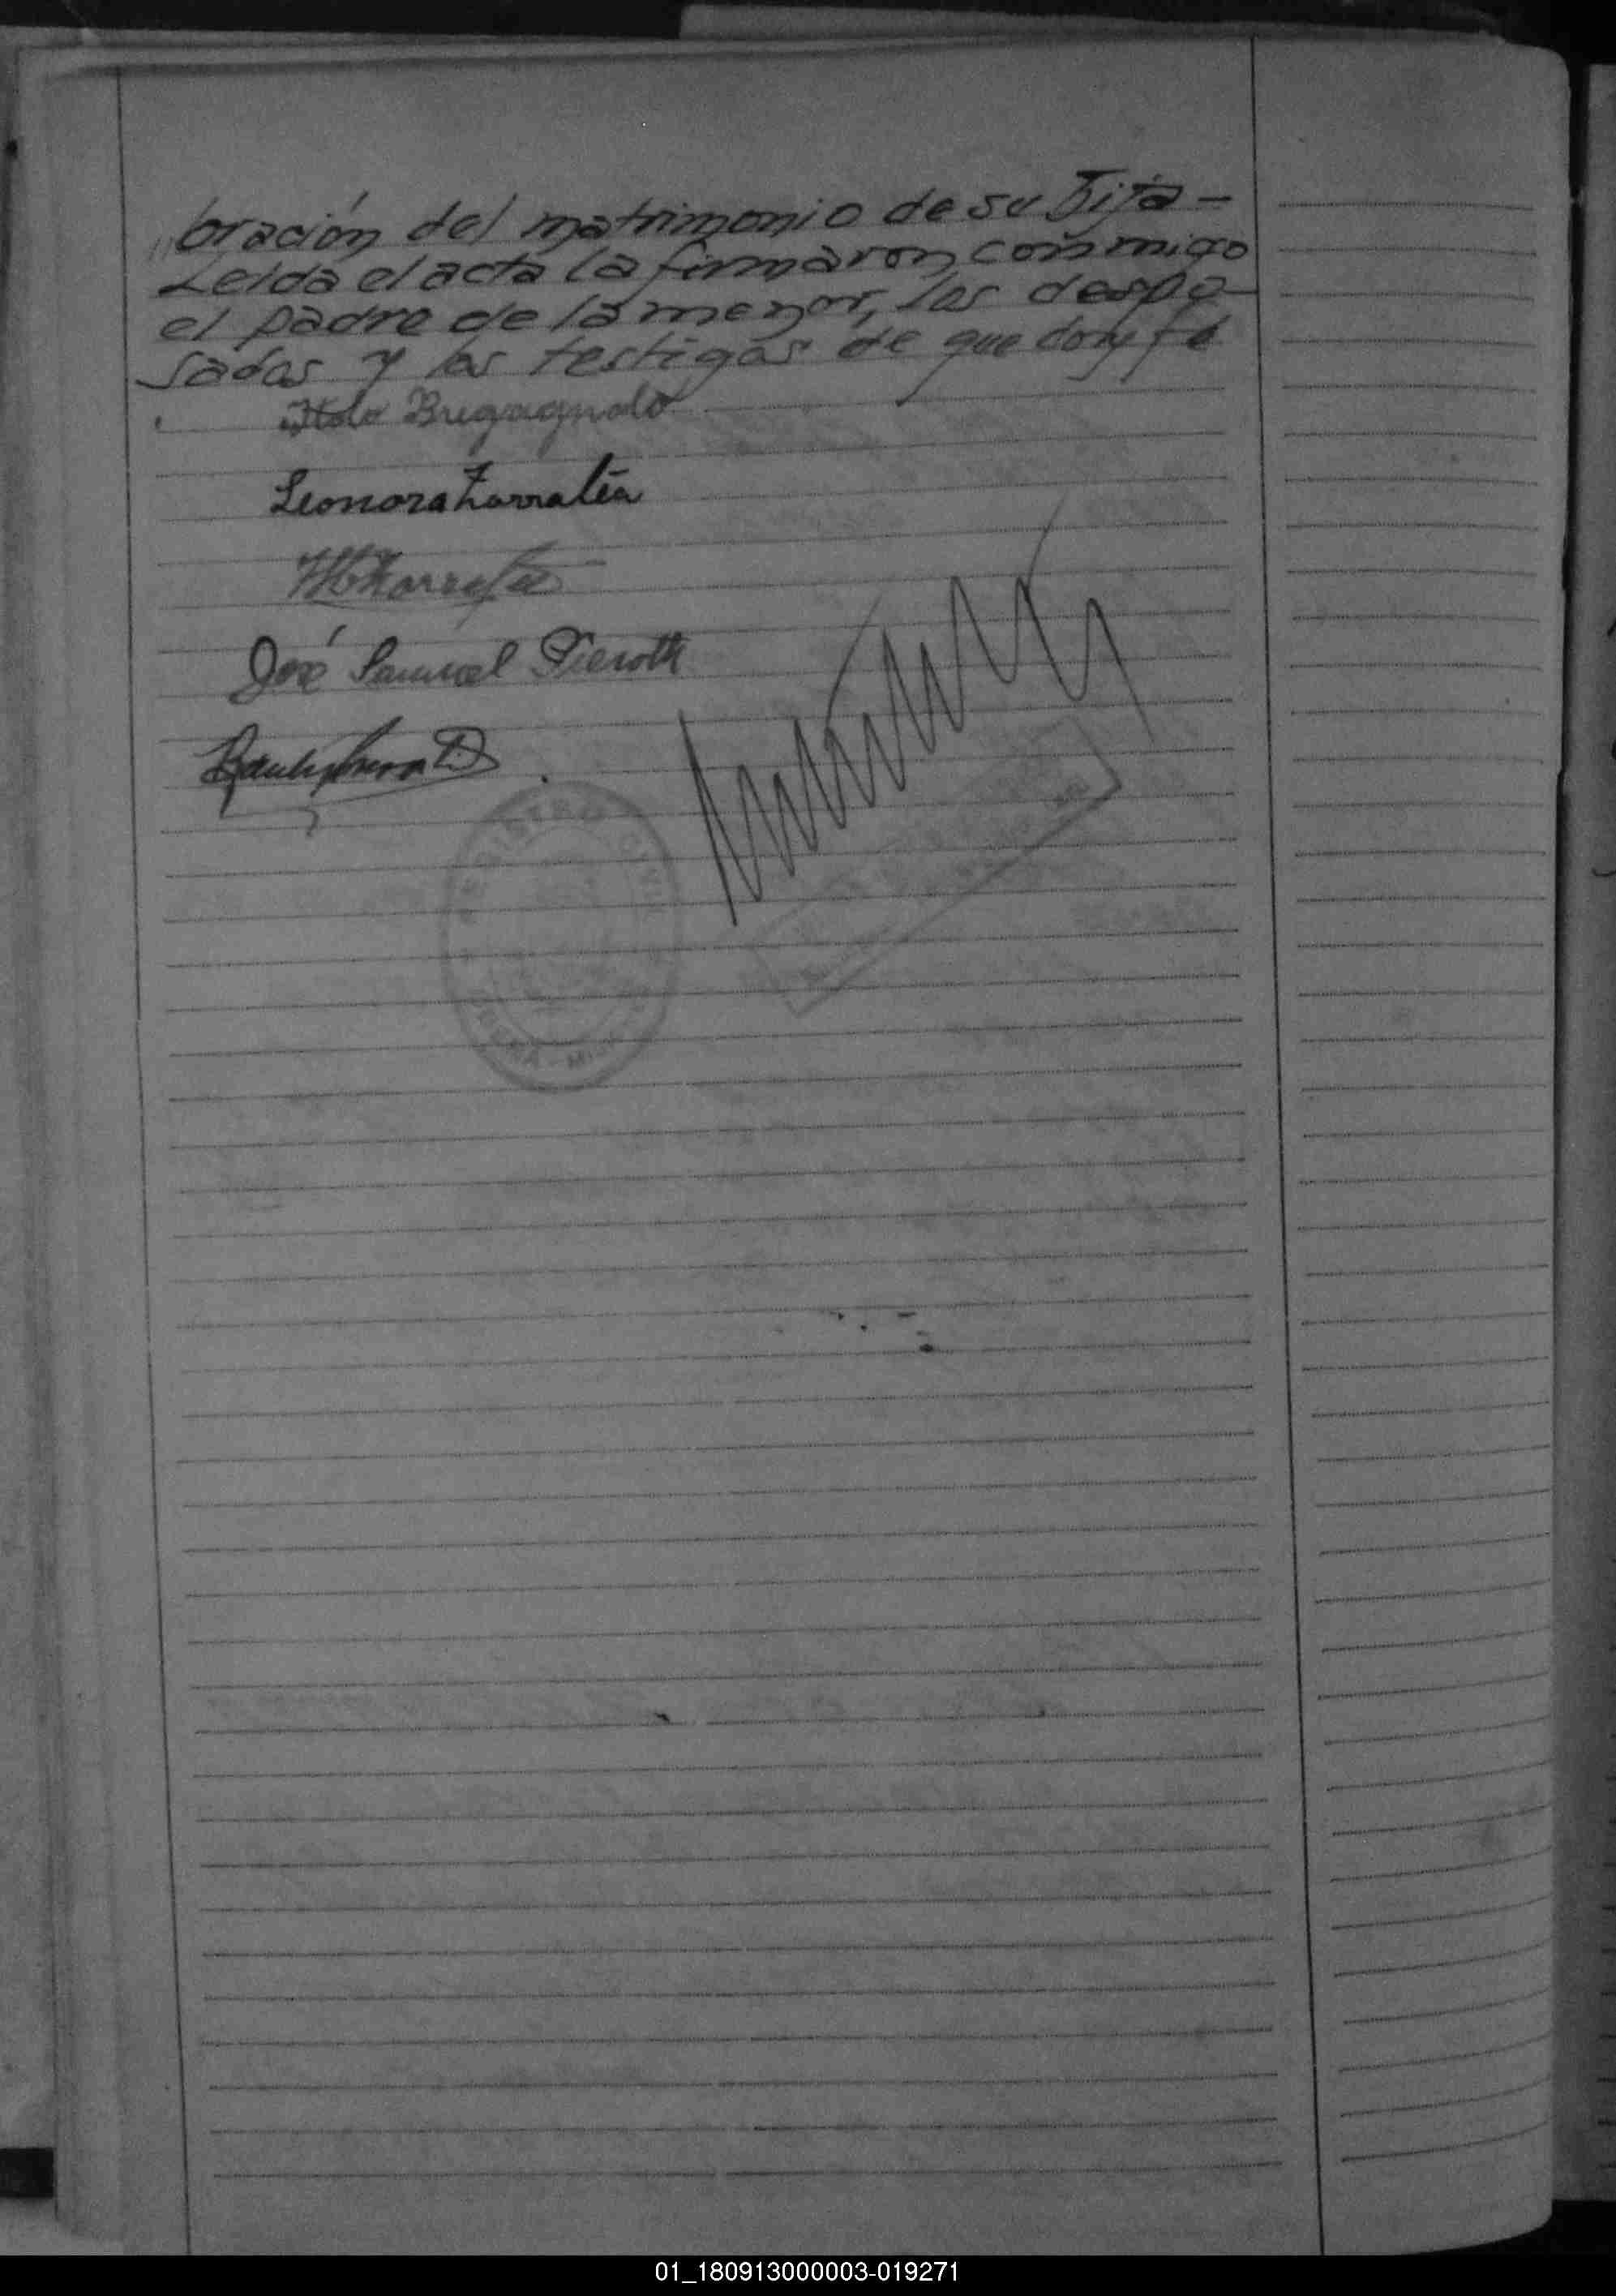 bración del matrimonio de su hija -
Leida el acta la firmaron conmigo
el padre de la menor, los despo-
sados y los testigos de que doy fé
Italo Bregagnolo
Leonora Zarratéa
José Samuel Pieroth
REGISTRO CIVIL
01_180913000003-019271